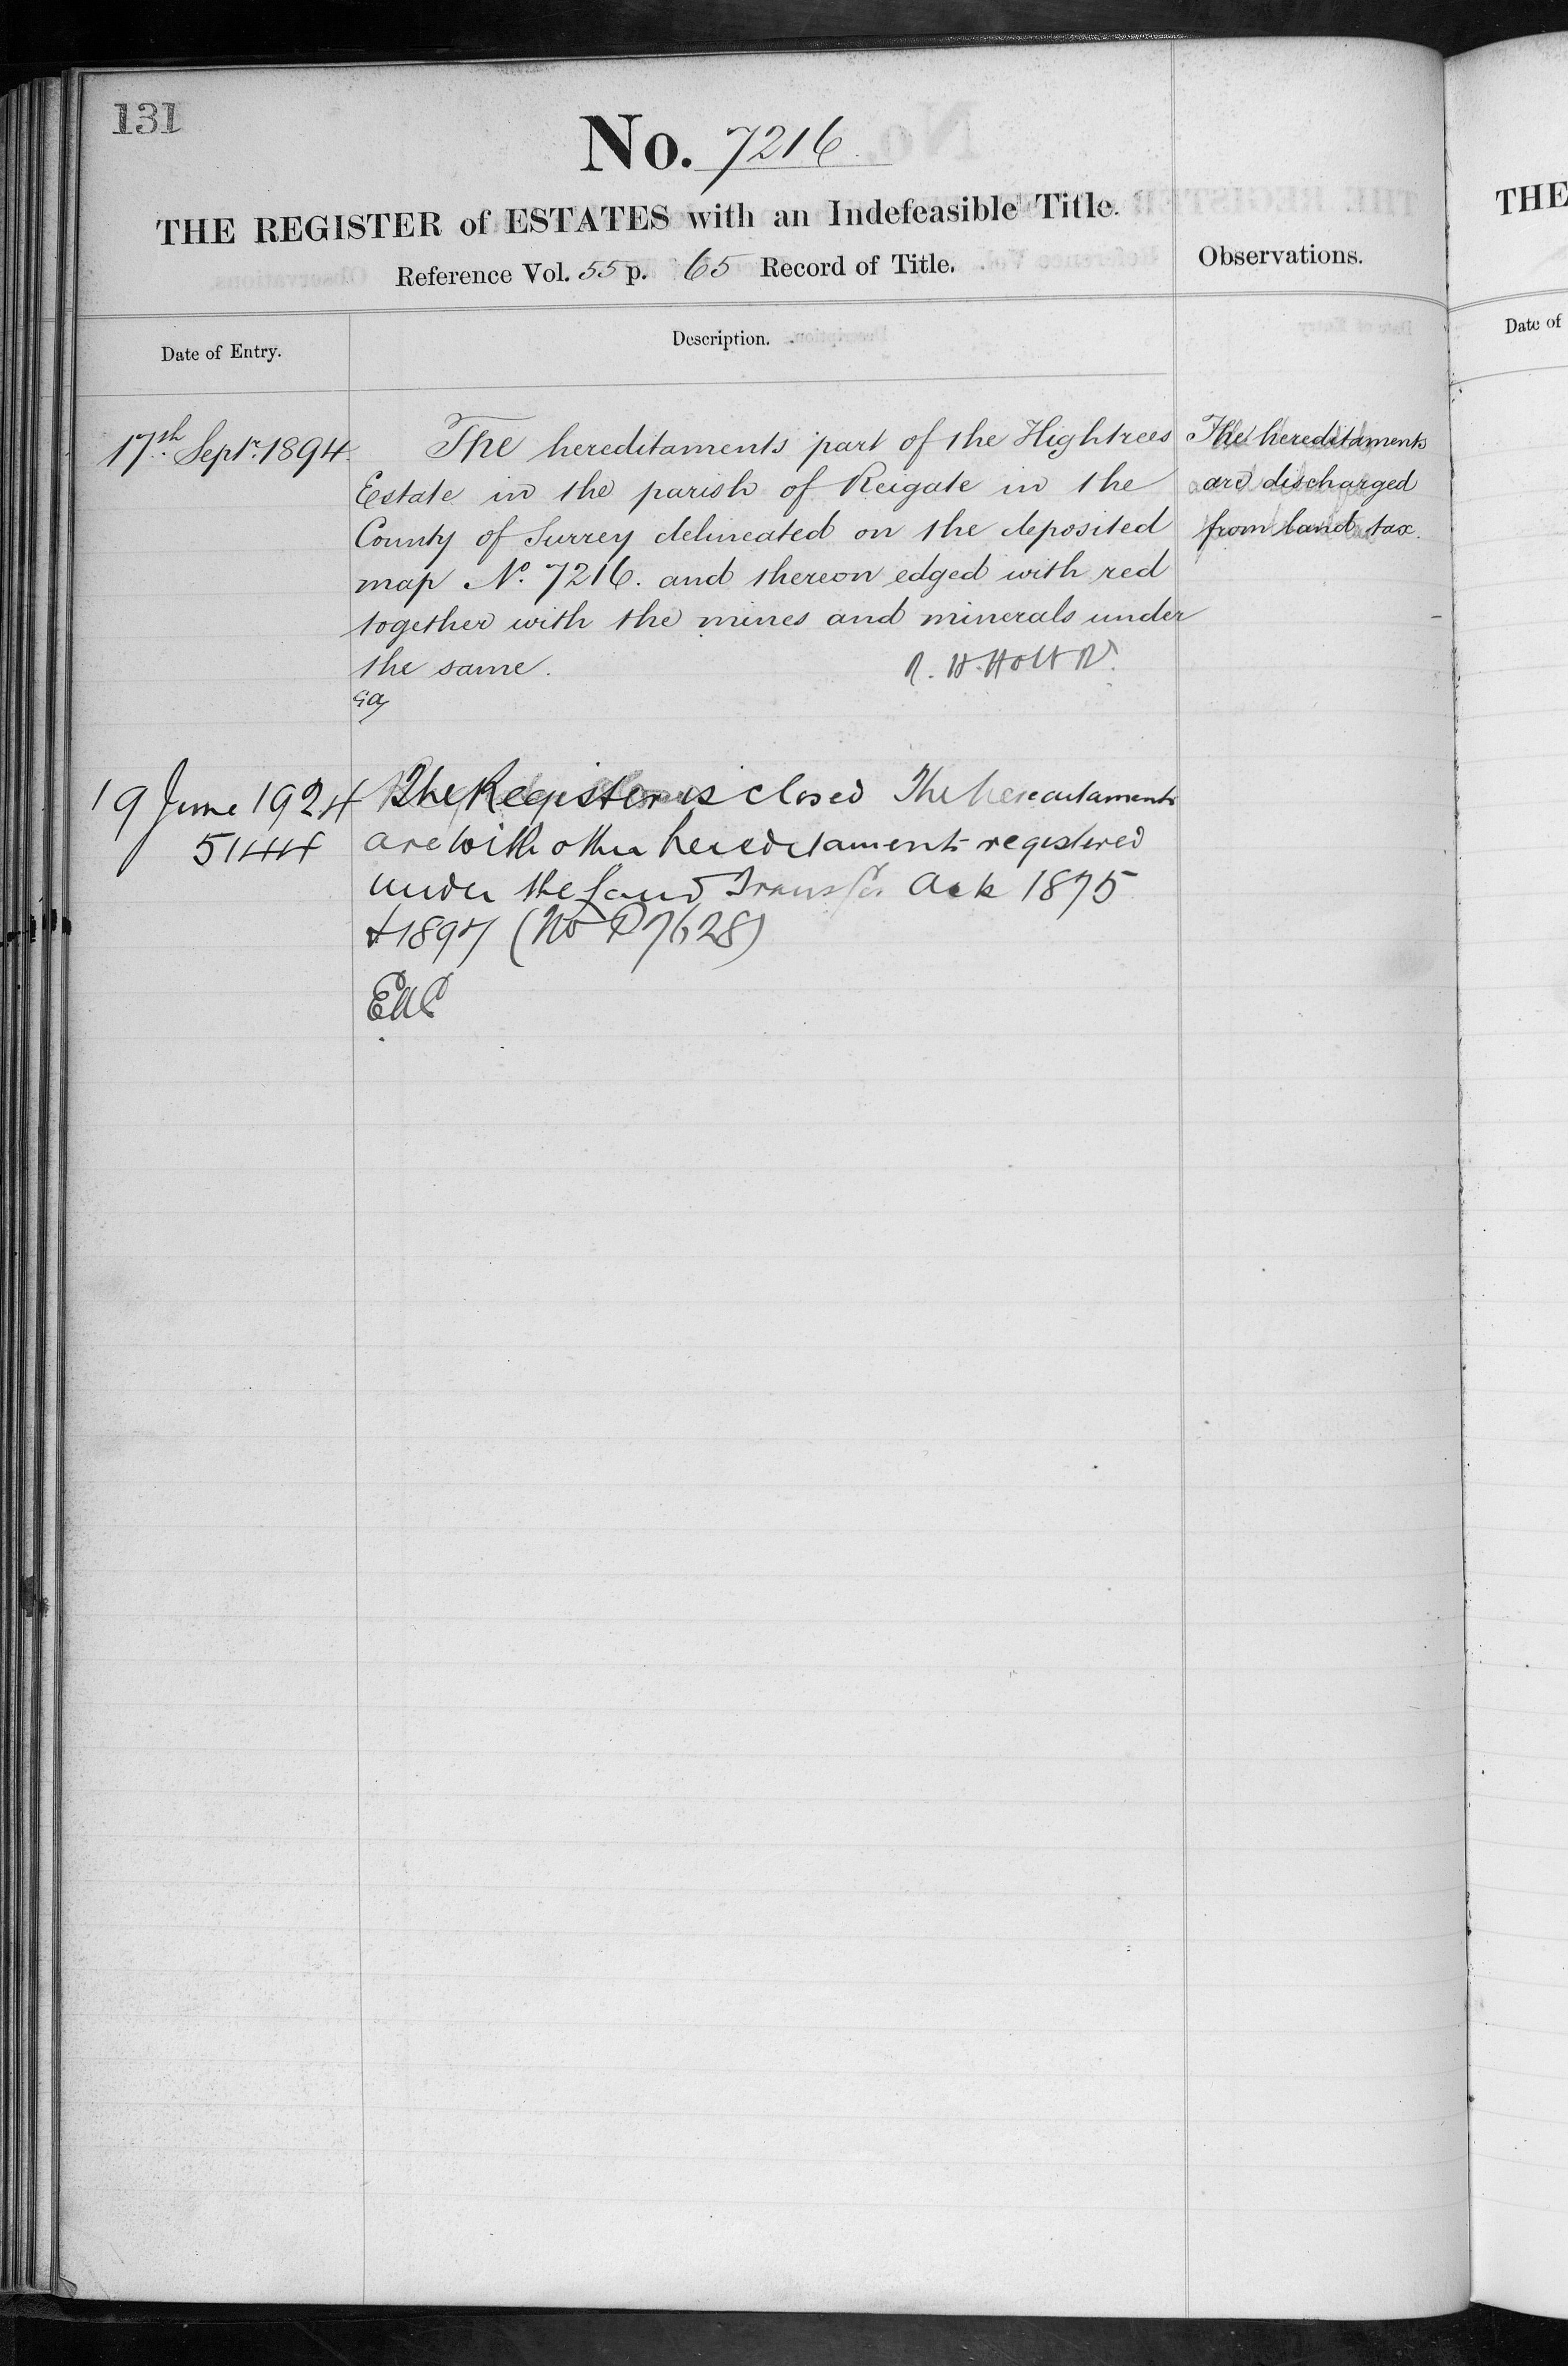 131
No. 7216
THE REGISTER of ESTATES with an Indefeasible Title.
Reference Vol. 55 p. 65 Record of Title.
Observations.
Date of Entry.
Description.
17th Septr. 1894
The hereditaments part of the Hightrees
Estate in the parish of Reigate in the
County of Surrey delineated on the deposited
map No. 7216. and thereon edged with red
together with the mines and minerals under
the same.
R. H. Holt R.
The hereditaments
are discharged
from land tax.
19 June 1924
The Register is closed The hereditaments
are with other hereditaments registered
under the Land Transfer Acts 1875
& 1897 (No P7628)
THE
Date of